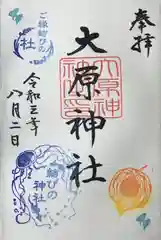 奉拝
大原神社
大原神
神社印
ご縁結びの
社
令和三年
八月二日
結びの
神社